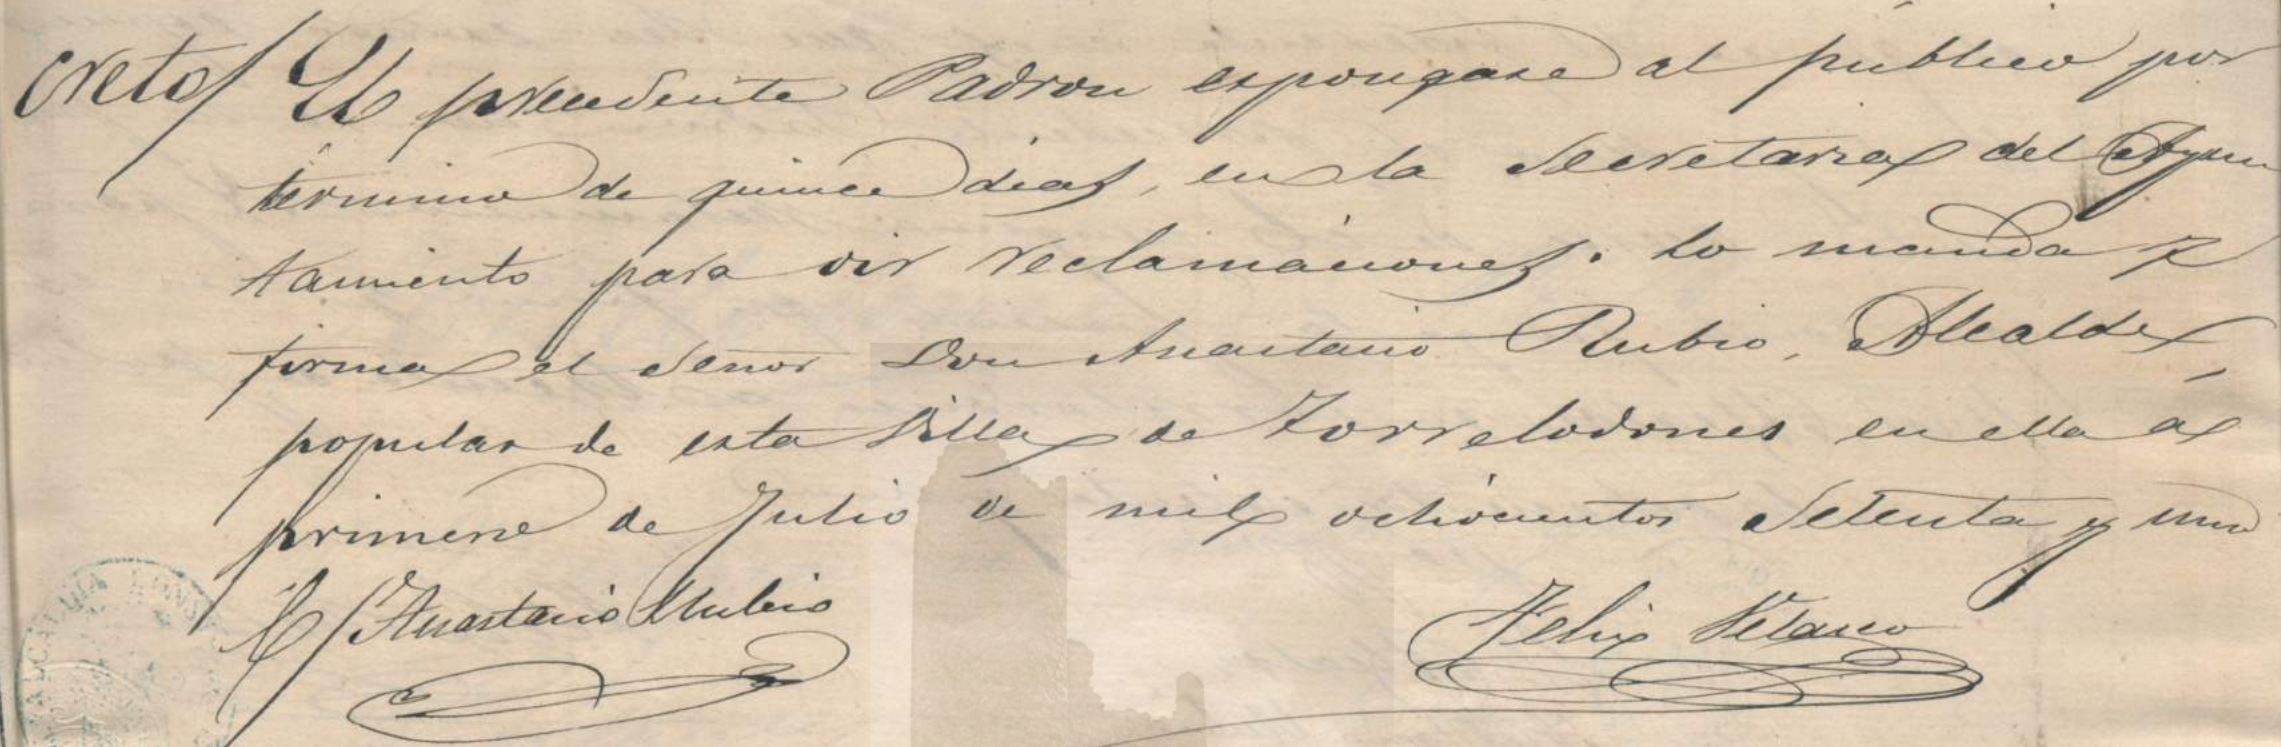 creto/ El precedente Padron espongase al público por
término de quince dias, en la Secretaria del Ayun
tamiento para oir reclamaciones. lo manda y
firma el Señor Don Anastasio Rubio, Alcalde
popular de esta Villa de Torrelodones en ella á
primero de Julio de mil ochocientos Setenta y uno
Anastasio Rubio Felix Velasco
ALCALDIA CONS